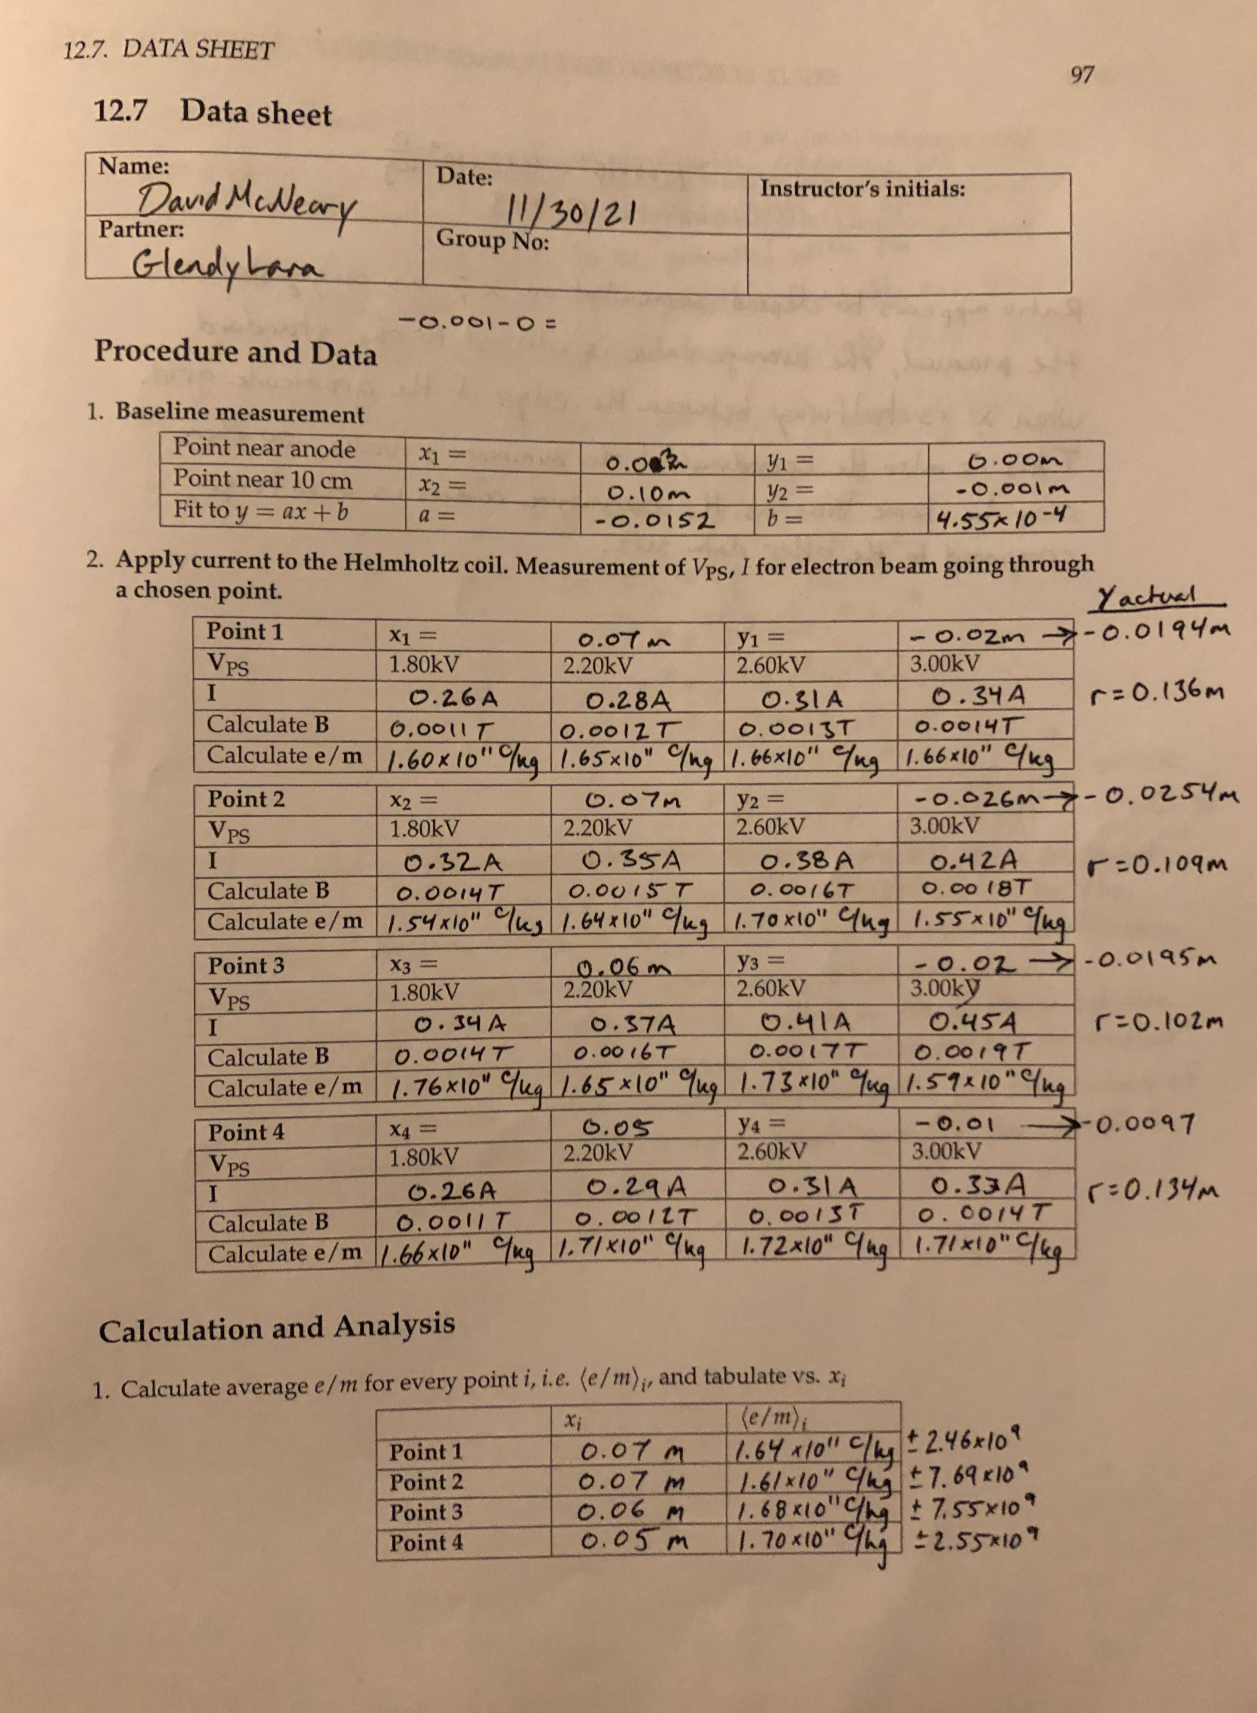 12.7. DATA SHEET
97
12.7 Data sheet
Name: David McNeary Date: 11/30/21 Instructor's initials:
Partner: Glendy Lara Group No:
-0.001-0=
Procedure and Data
1. Baseline measurement
Point near anode x₁ = y₁ = 0.00m
Point near 10 cm x₂ = 0.10m y₂ = -0.001m
Fit to y = ax + b a = -0.0152 b = 4.55x10⁻⁴
2. Apply current to the Helmholtz coil. Measurement of V_PS, I for electron beam going through
a chosen point.
Yactual
Point 1 x₁ = 0.07m y₁ = -0.02m → -0.0194m
V_PS 1.80kV 2.20kV 2.60kV 3.00kV
I 0.26A 0.28A 0.31A 0.34A r=0.136m
Calculate B 0.0011T 0.0012T 0.0013T 0.0014T
Calculate e/m 1.60x10¹¹ C/kg 1.65x10¹¹ C/kg 1.66x10¹¹ C/kg 1.66x10¹¹ C/kg
Point 2 x₂ = 0.07m y₂ = -0.026m → -0.0254m
V_PS 1.80kV 2.20kV 2.60kV 3.00kV
I 0.32A 0.35A 0.38A 0.42A r=0.109m
Calculate B 0.0014T 0.0015T 0.0016T 0.0018T
Calculate e/m 1.54x10¹¹ C/kg 1.64x10¹¹ C/kg 1.70x10¹¹ C/kg 1.55x10¹¹ C/kg
Point 3 x₃ = 0.06m y₃ = -0.02 → -0.0195m
V_PS 1.80kV 2.20kV 2.60kV 3.00kV
I 0.34A 0.37A 0.41A 0.45A r=0.102m
Calculate B 0.0014T 0.0016T 0.0017T 0.0019T
Calculate e/m 1.76x10¹¹ C/kg 1.65x10¹¹ C/kg 1.73x10¹¹ C/kg 1.59x10¹¹ C/kg
Point 4 x₄ = 0.05 y₄ = -0.01 → -0.0097
V_PS 1.80kV 2.20kV 2.60kV 3.00kV
I 0.26A 0.29A 0.31A 0.33A r=0.134m
Calculate B 0.0011T 0.0012T 0.0013T 0.0014T
Calculate e/m 1.66x10¹¹ C/kg 1.71x10¹¹ C/kg 1.72x10¹¹ C/kg 1.71x10¹¹ C/kg
Calculation and Analysis
1. Calculate average e/m for every point i, i.e. ⟨e/m⟩ᵢ, and tabulate vs. xᵢ
xᵢ ⟨e/m⟩ᵢ
Point 1 0.07 m 1.64x10¹¹ C/kg ± 2.46x10⁹
Point 2 0.07 m 1.61x10¹¹ C/kg ± 7.69x10⁹
Point 3 0.06 m 1.68x10¹¹ C/kg ± 7.55x10⁹
Point 4 0.05 m 1.70x10¹¹ C/kg ± 2.55x10⁹